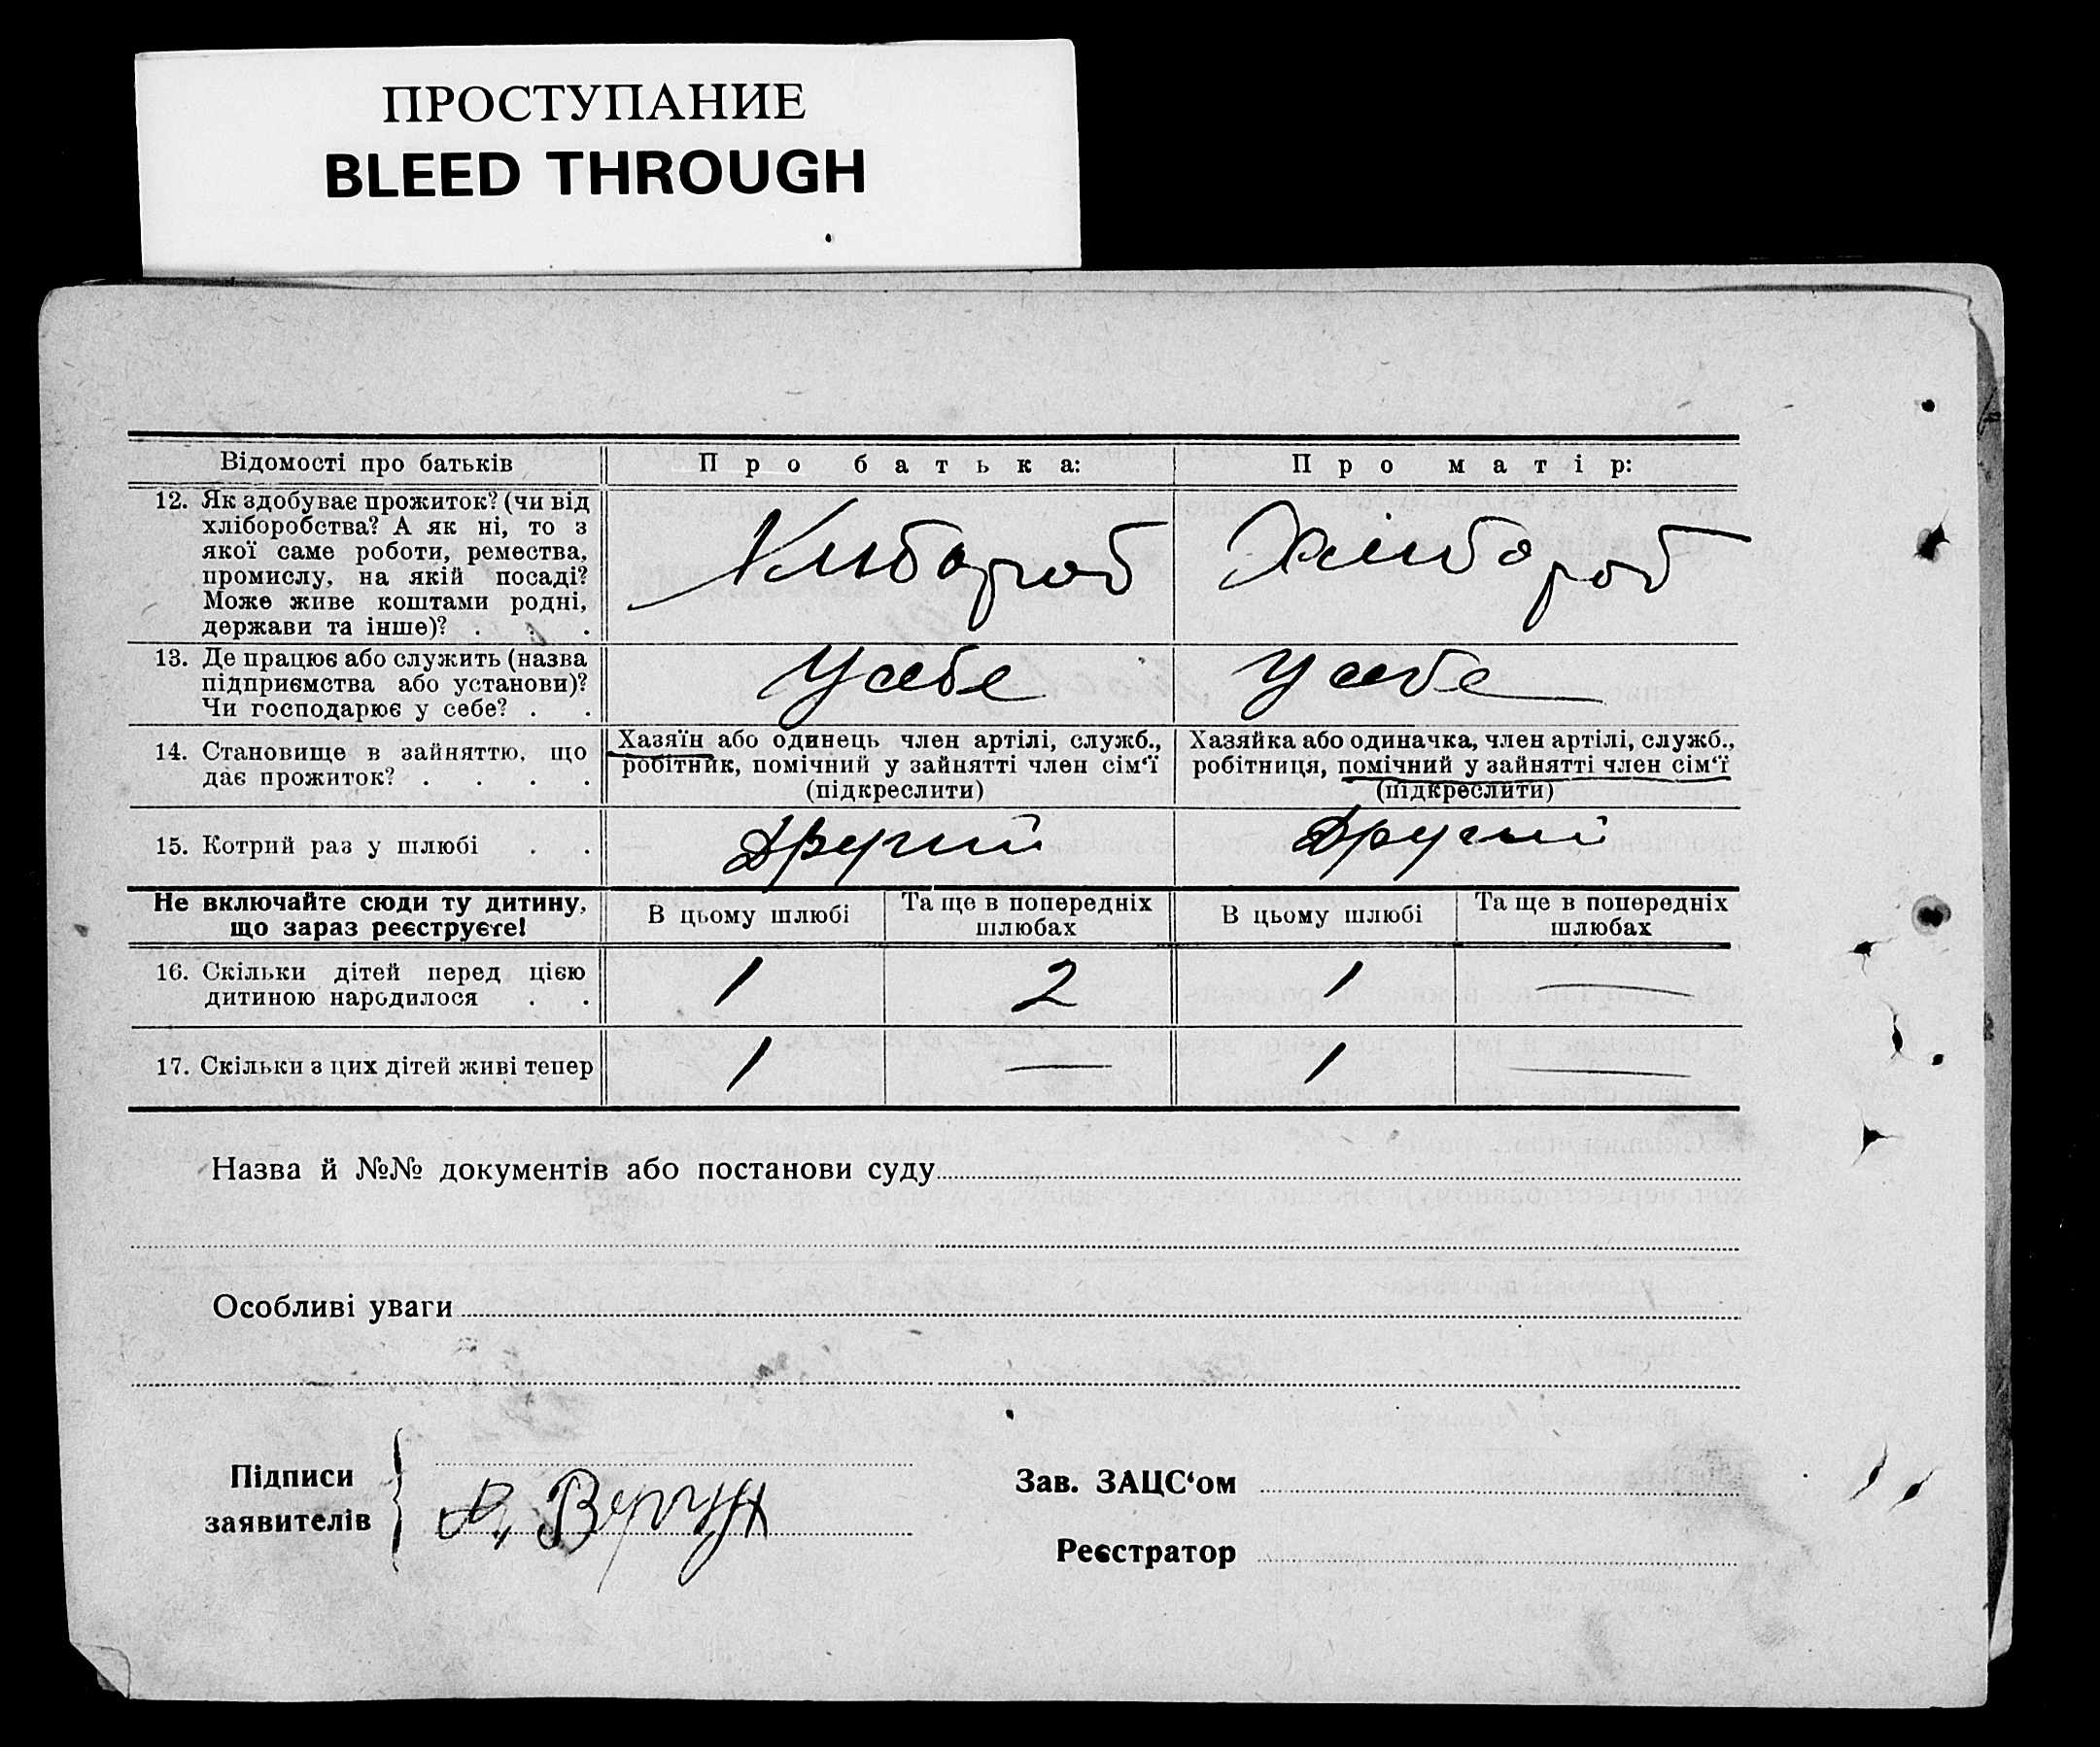 ПРОСТУПАНИЕ
BLEED THROUGH
Відомості про батьків
Про батька:
Про матір:
12. Як здобуває прожиток? (чи від
хліборобства? А як ні, то з
якої саме роботи, ремества,
промислу, на якій посаді?
Може живе коштами родні,
держави та інше)? . . .
Хлібороб
Хлібороб
13. Де працює або служить (назва
підприємства або установи)?
Чи господарює у себе? . .
У себе
У себе
14. Становище в зайняттю, що
дає прожиток? . . . .
Хазяїн або одинець член артілі, служб.,
робітник, помічний у зайнятті член сім‘ї
(підкреслити)
Хазяйка або одиначка, член артілі, служб.,
робітниця, помічний у зайнятті член сім‘ї
(підкреслити)
15. Котрий раз у шлюбі . .
Другий
Другий
Не включайте сюди ту дитину,
що зараз реєструєте!
В цьому шлюбі
Та ще в попередніх
шлюбах
В цьому шлюбі
Та ще в попередніх
шлюбах
16. Скільки дітей перед цією
дитиною народилося . .
1
2
1
—
17. Скільки з цих дітей живі тепер
1
—
1
—
Назва й №№ документів або постанови суду
Особливі уваги
Підписи
заявителів
Зав. ЗАЦС‘ом
Реєстратор